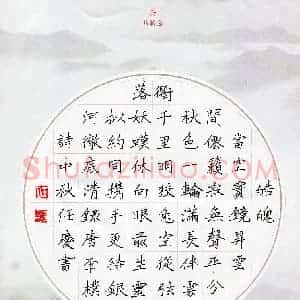 皓魄
當空寶鏡昇雲
間僊籟寂無聲平分
秋色一輪滿長伴雲
衢千里明狡兔空從弦
落妖蟆休向眼前生靈
擬約同攜手更待銀
河徹底清錄唐李樸
詩中秋任慶書
Shufaziliao.com